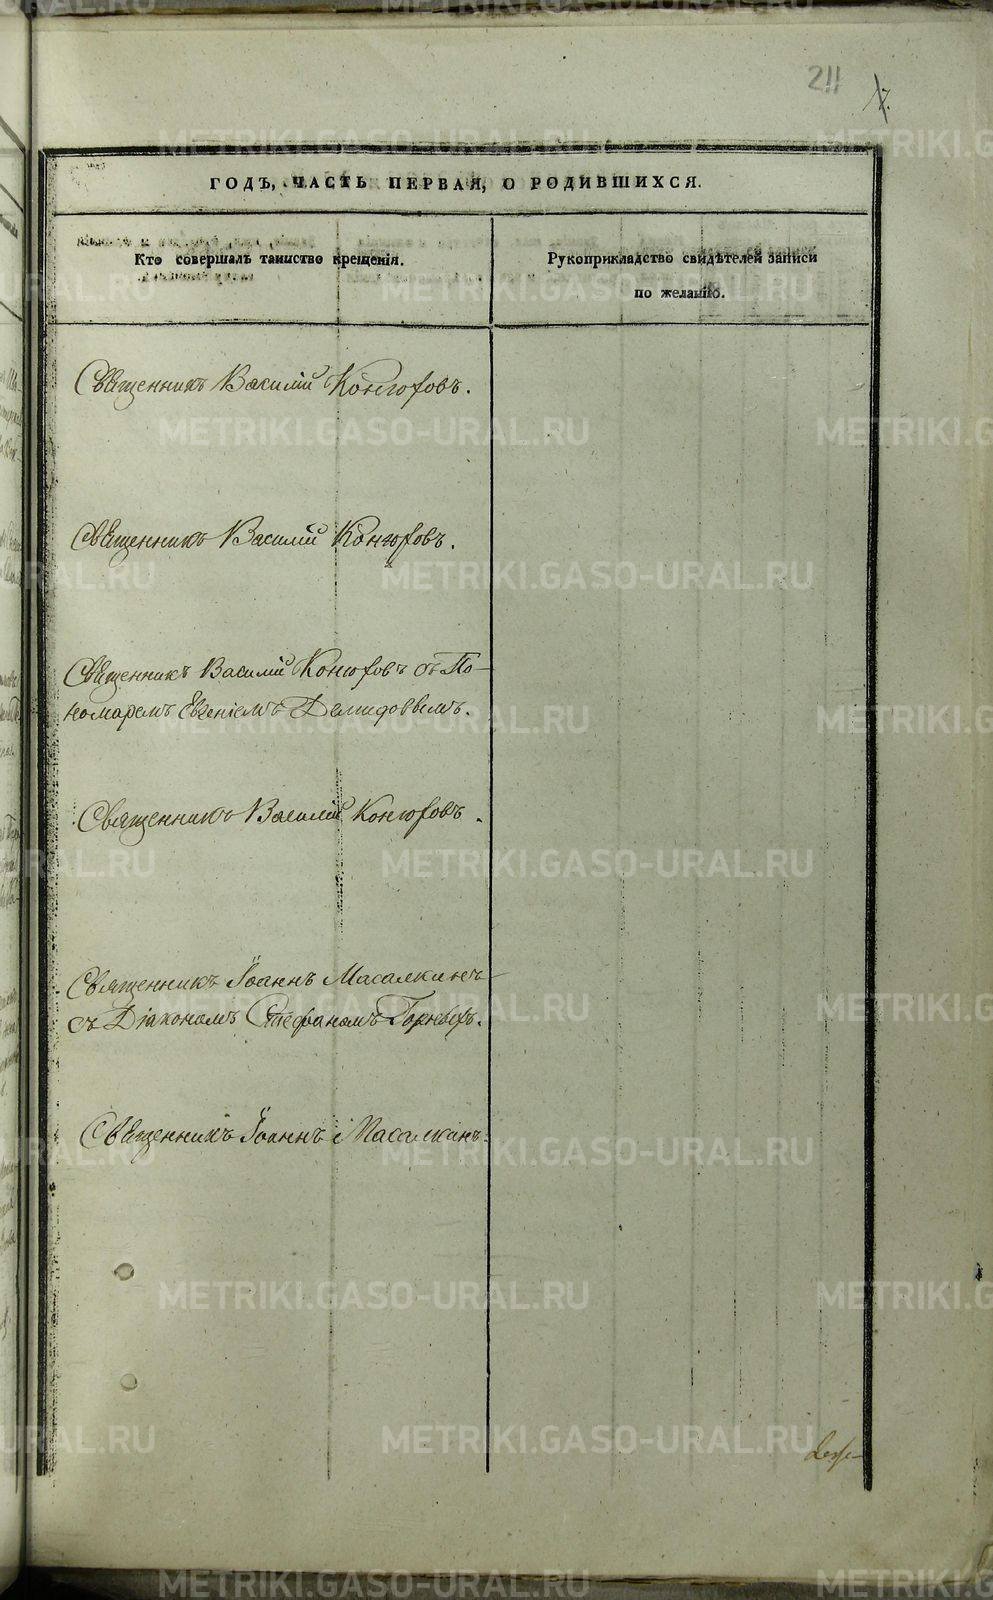 211
ГОДЪ, ЧАСТЬ ПЕРВАЯ, О РОДИВШИХСЯ.
Кто совершалъ таинство крещенія.
Рукоприкладство свидѣтелей записи
по желанію.
Священникъ Василій Конюховъ.
Священникъ Василій Конюховъ.
Священникъ Василій Конюховъ съ По-
номаремъ Евгеніемъ Демидовымъ.
Священникъ Василій Конюховъ.
Священникъ Іоаннъ Масалкинъ
съ Діакономъ Стефаномъ Горныхъ.
Священникъ Іоаннъ Масалкинъ.
METRIKI.GASO-URAL.RU